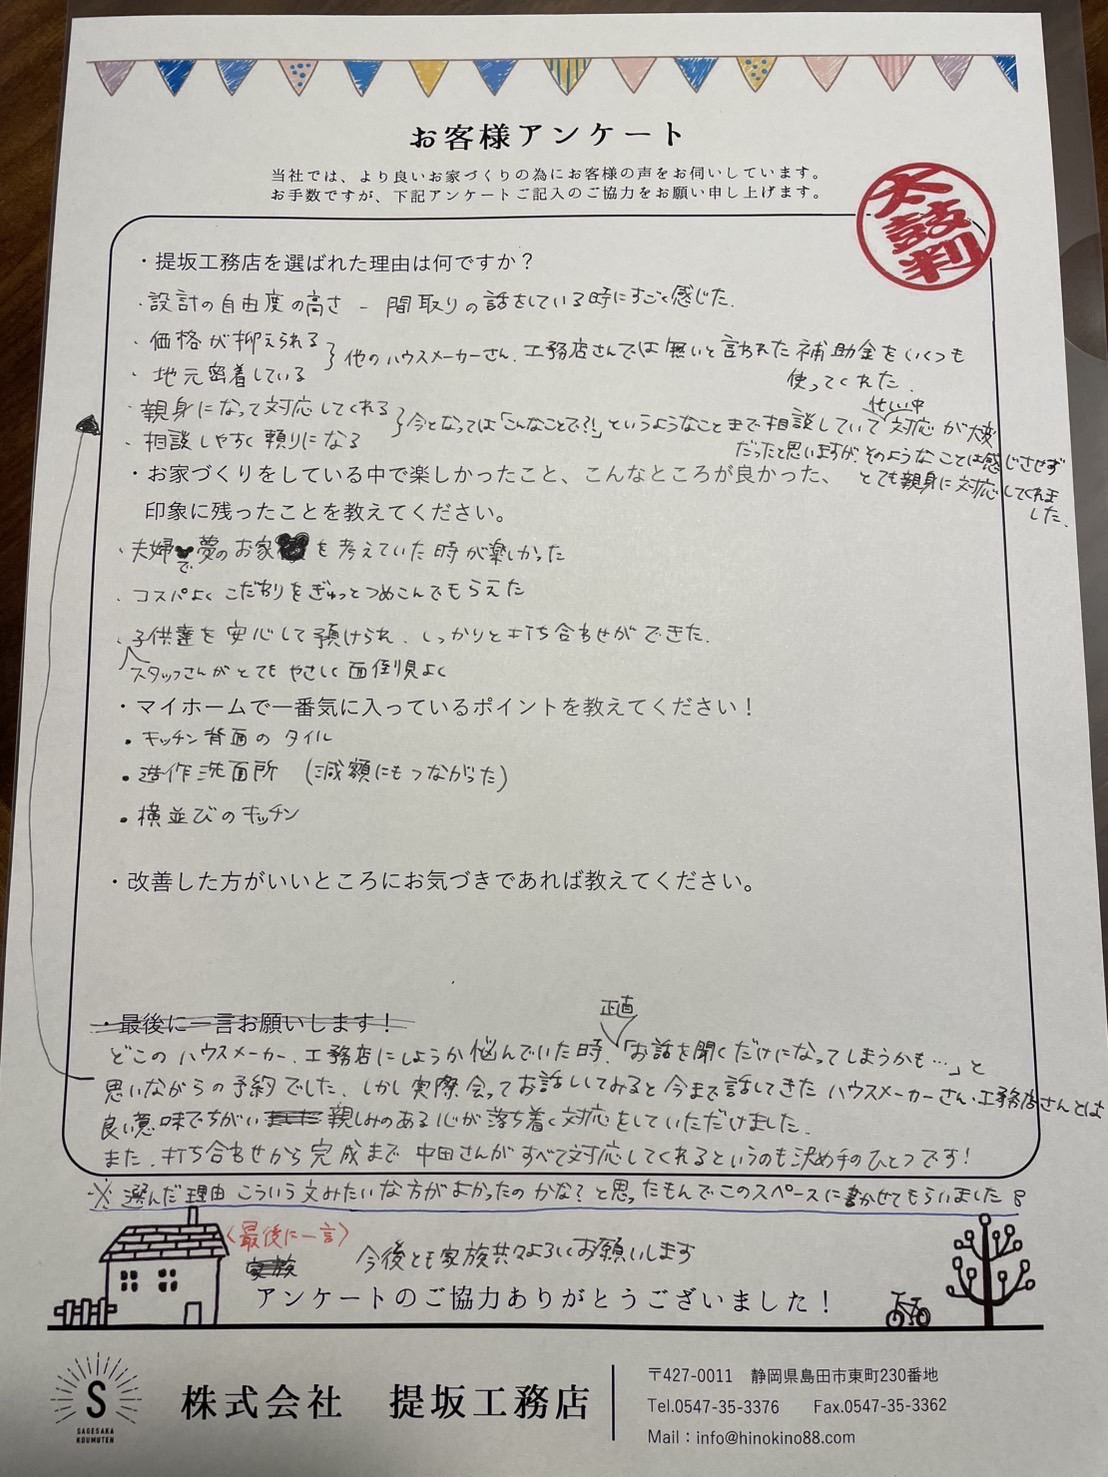 お客様アンケート
当社では、より良いお家づくりの為にお客様の声をお伺いしています。
お手数ですが、下記アンケートご記入のご協力をお願い申し上げます。
太鼓判
・提坂工務店を選ばれた理由は何ですか？
・設計の自由度の高さ － 間取りの話をしている時にすごく感じた。
・価格が抑えられる
・地元密着している
他のハウスメーカーさん、工務店さんでは無いと言われた補助金をいくつも
使ってくれた。
・親身になって対応してくれる
・相談しやすく頼りになる
今となっては「こんなことで?!」というようなことまで相談していて忙しい中対応が大変
だったと思いますが、そのようなことは感じさせず
とても親身に対応してくれま
した。
・お家づくりをしている中で楽しかったこと、こんなところが良かった、
印象に残ったことを教えてください。
・夫婦で夢のお家を考えていた時が楽しかった
・コスパよくこだわりをぎゅっとつめこんでもらえた
・子供達を安心して預けられ、しっかりと打ち合わせができた。
スタッフさんがとてもやさしく面倒見よく
・マイホームで一番気に入っているポイントを教えてください！
・キッチン背面のタイル
・造作洗面所 (減額にもつながった)
・横並びのキッチン
・改善した方がいいところにお気づきであれば教えてください。
・最後に一言お願いします！
正直
どこのハウスメーカー、工務店にしようか悩んでいた時、「お話を聞くだけになってしまうかも…」と
思いながらの予約でした。しかし実際会ってお話ししてみると今まで話してきたハウスメーカーさん・工務店さんとは
良い意味でちがい親しみのある心が落ち着く対応をしていただけました。
また、打ち合わせから完成まで中田さんがすべて対応してくれるというのも決め手のひとつです！
※選んだ理由こういう文みたいな方がよかったのかな？と思ったもんでこのスペースに書かせてもらいました
〈最後に一言〉
家族
今後とも家族共々よろしくお願いします
アンケートのご協力ありがとうございました！
S
SAGESAKA
KOUMUTEN
株式会社 提坂工務店
〒427-0011 静岡県島田市東町230番地
Tel.0547-35-3376 Fax.0547-35-3362
Mail：info@hinokino88.com